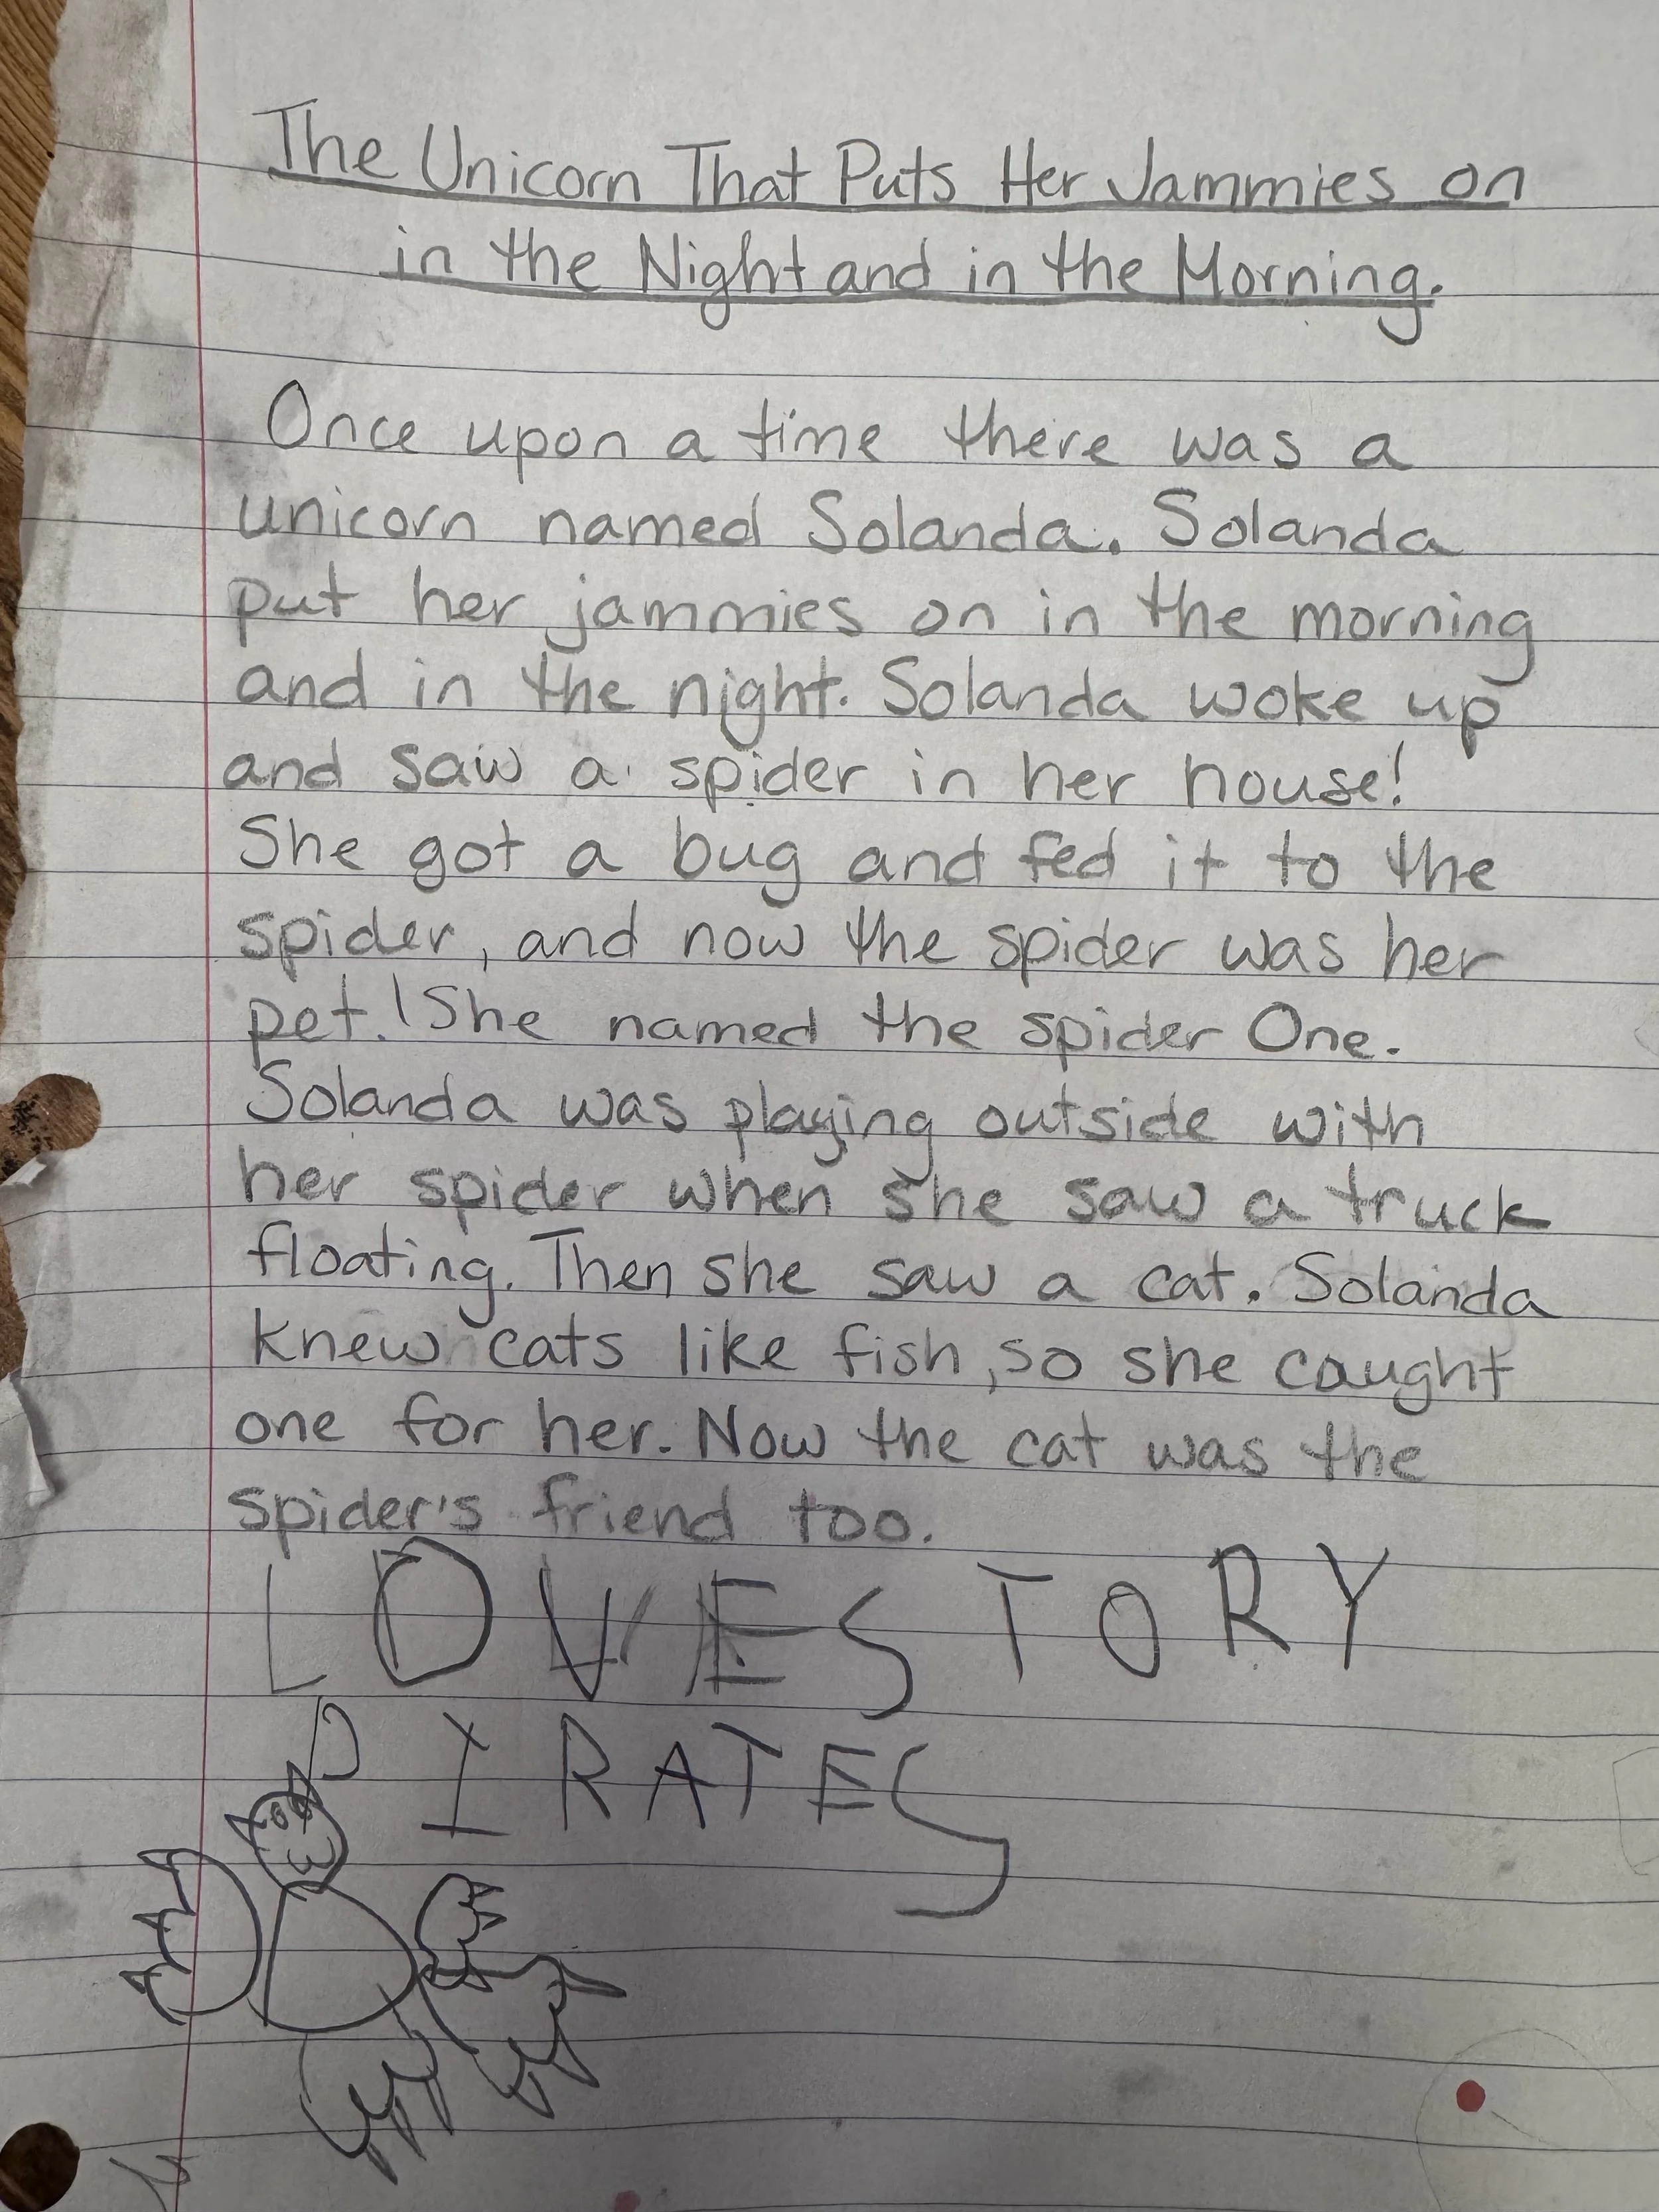 The Unicorn That Puts Her Jammies on
in the Night and in the Morning.
Once upon a time there was a
unicorn named Solanda. Solanda
put her jammies on in the morning
and in the night. Solanda woke up
and saw a spider in her house!
She got a bug and fed it to the
spider, and now the spider was her
pet.! She named the spider One.
Solanda was playing outside with
her spider when she saw a truck
floating. Then she saw a cat. Solanda
knew cats like fish, so she caught
one for her. Now the cat was the
spider's friend too.
LOVE STORY
PIRATES